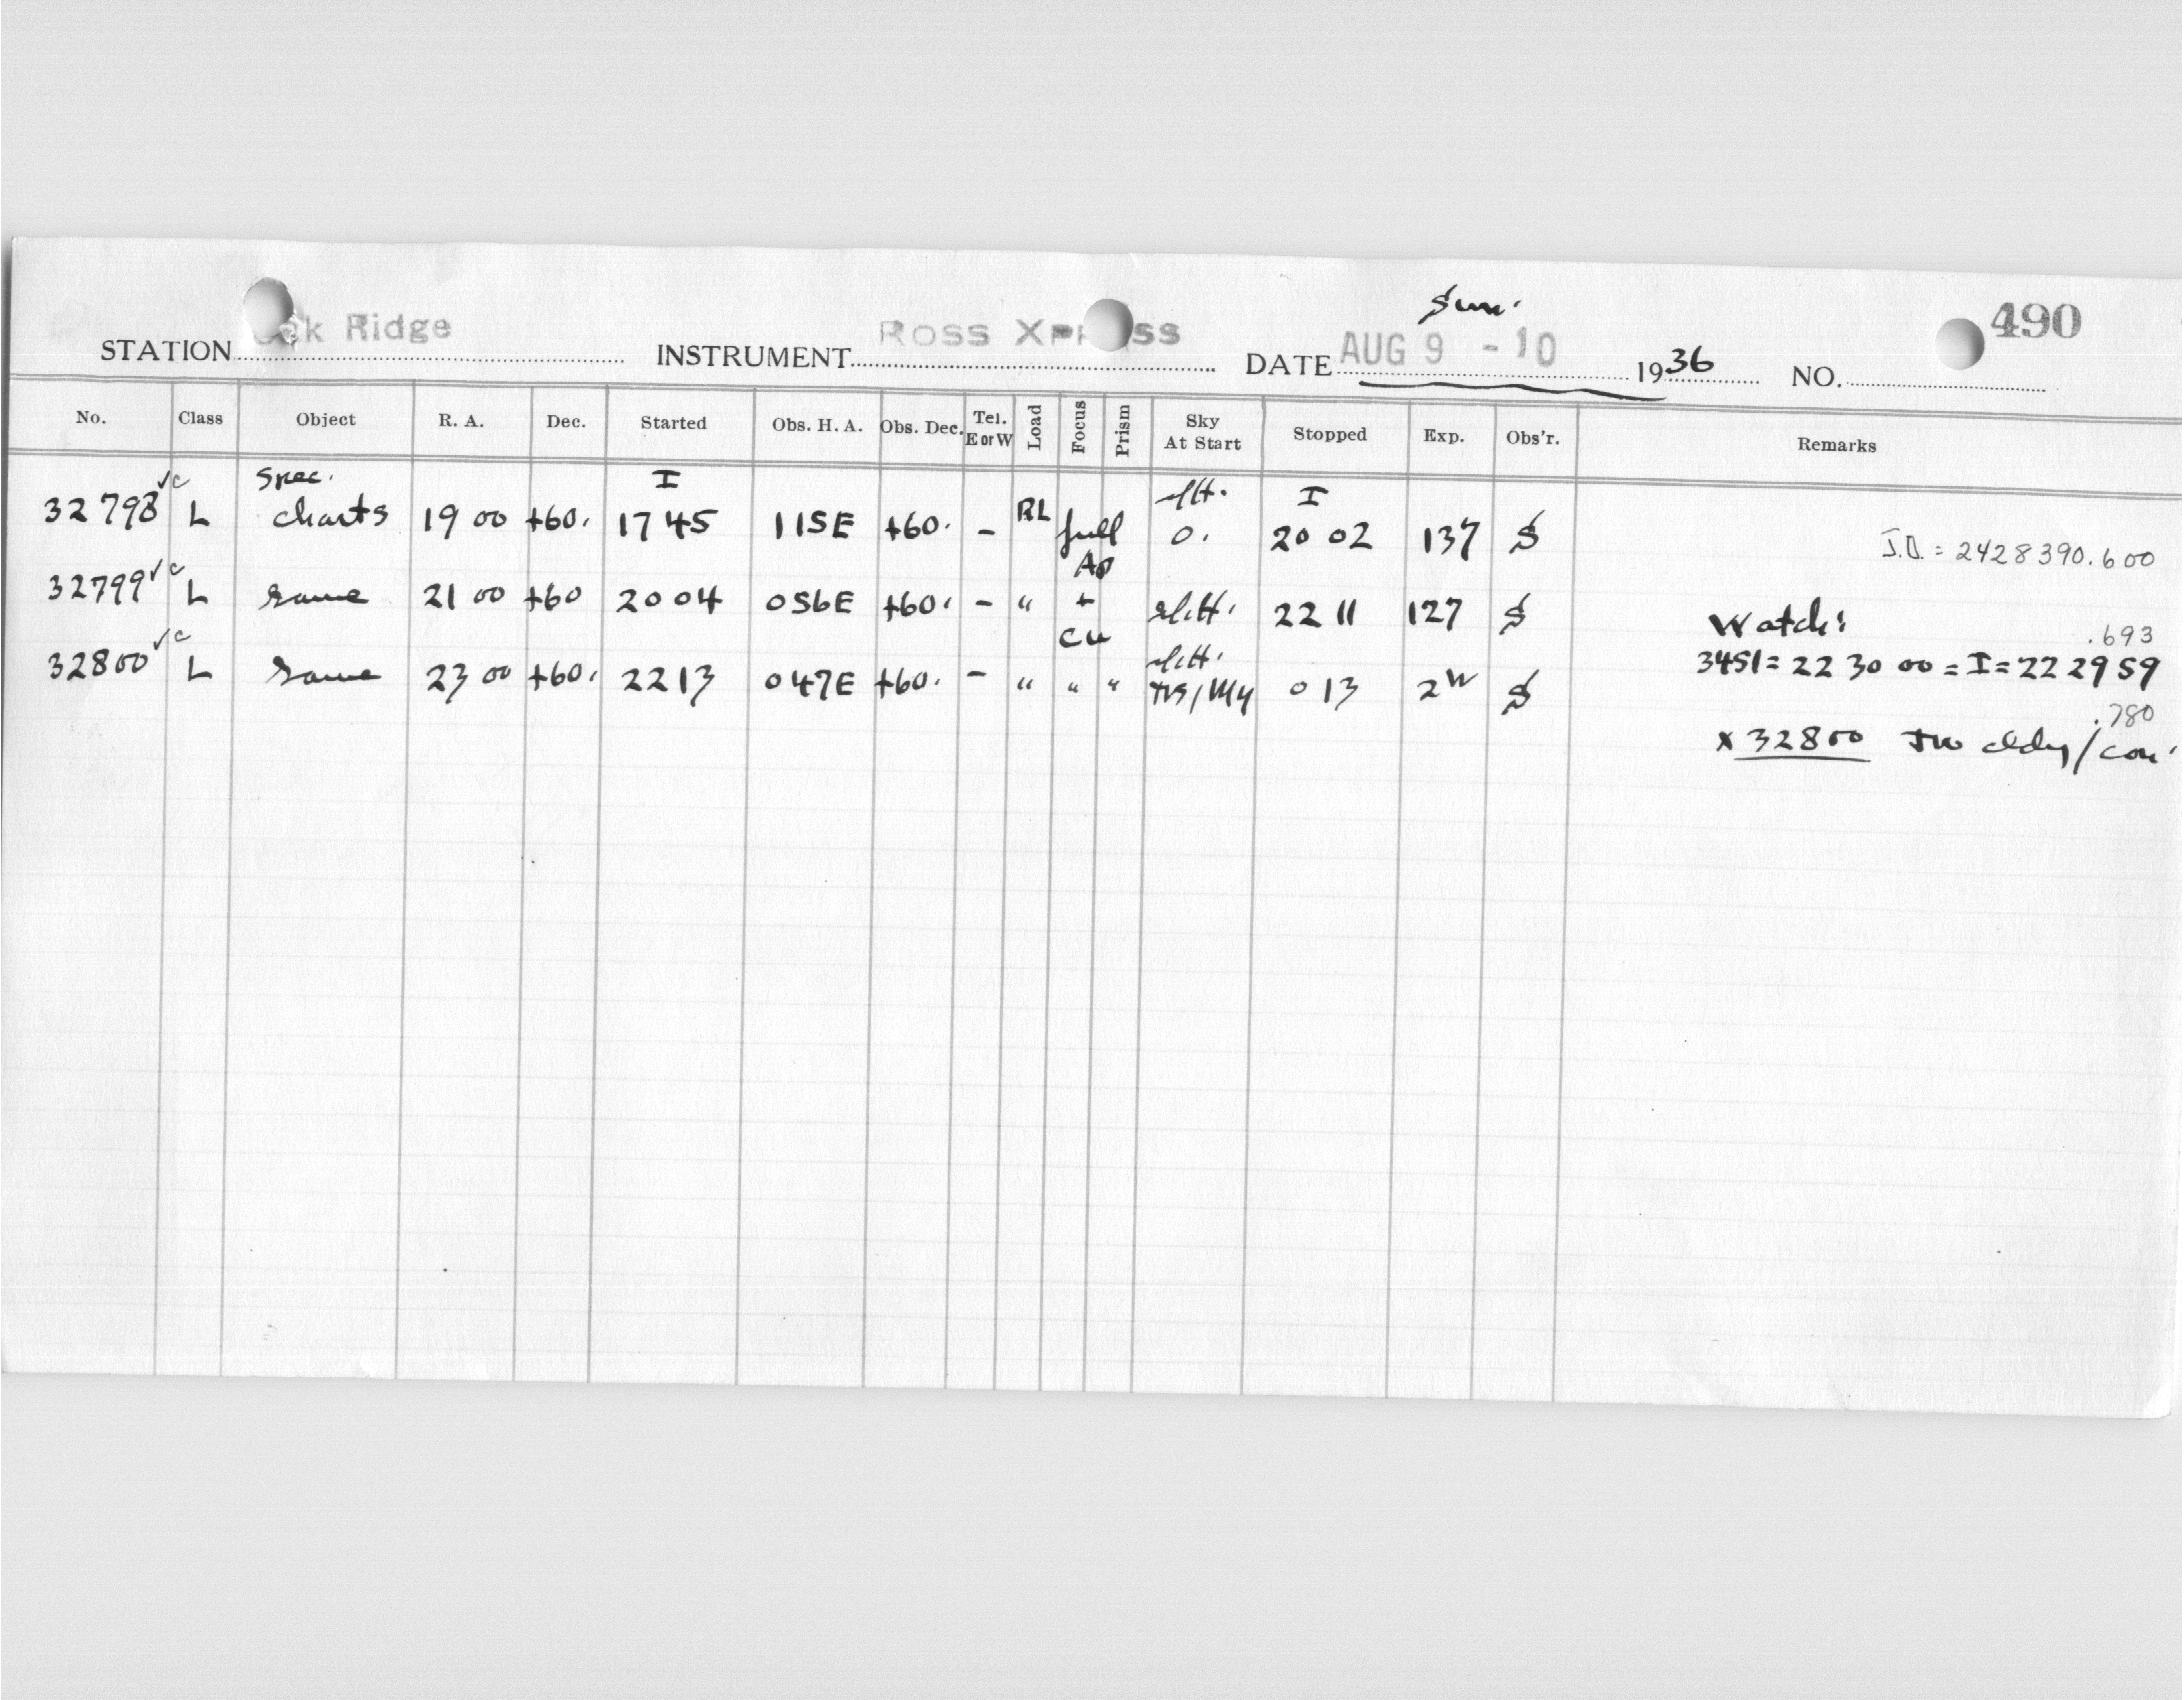 Sun.
STATION Oak Ridge INSTRUMENT Ross Xpress DATE AUG 9 - 10 1936 NO. 490
No. Class Object R. A. Dec. Started Obs. H. A. Obs. Dec. Tel. E or W Load Focus Prism Sky At Start Stopped Exp. Obs'r. Remarks
Spec. I I
32798 ✓c L charts 19 00 +60. 17 45 115E +60. - RL full 0. 20 02 137 S J.D. = 2428390.600
Ap
32799 ✓c L same 21 00 +60 20 04 056E +60. - " + 22 11 127 S Watch:
.693
Cu
32800 ✓c L same 23 00 +60. 22 13 047E +60. - " " " 0 13 2W S 3451 = 22 30 00 = I = 22 29 59
.780
x 32800 cldy/